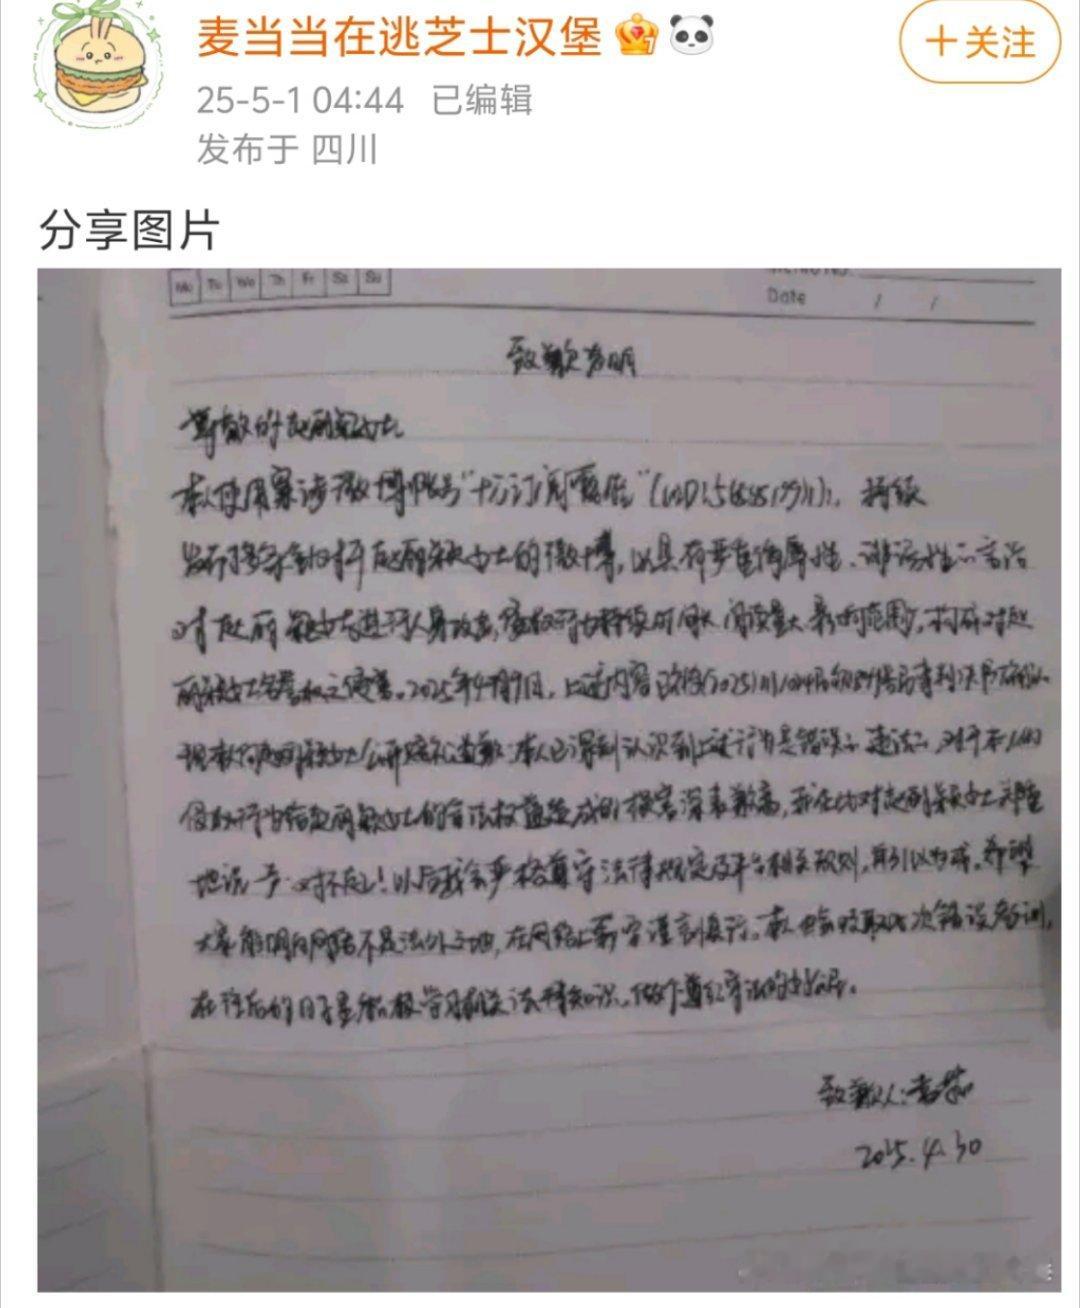 麦当当在逃芝士汉堡
+关注
25-5-1 04:44 已编辑
发布于 四川
分享图片
Mo Tu We Th Fr Sa Su
Date / /
致歉声明
尊敬的赵丽颖女士
本人使用案涉微博帐号 持续
发布多条针对赵丽颖女士的微博，以具有严重侮辱性、诽谤性言论
对赵丽颖女士进行人身攻击，侵权行为持续时间长 阅读量大 影响范围广，构成对赵
丽颖女士名誉权之侵害。2025年4月9日，上述内容
现本人向赵丽颖女士公开赔礼道歉 本人已深刻认识到上述行为是错误 违法 对于本人的
侵权行为给赵丽颖女士的合法权益造成的损害深表歉意，我在此对赵丽颖女士郑重
地说一声 对不起！以后我会严格遵守法律规定及平台相关规则，引以为戒。希望
大家能明白网络不是法外之地，在网络上 谨言慎行。本人也会吸取此次错误教训，
在往后的日子里积极学习相关法律知识，做个遵纪守法的好公民。
致歉人：
2025.4.30